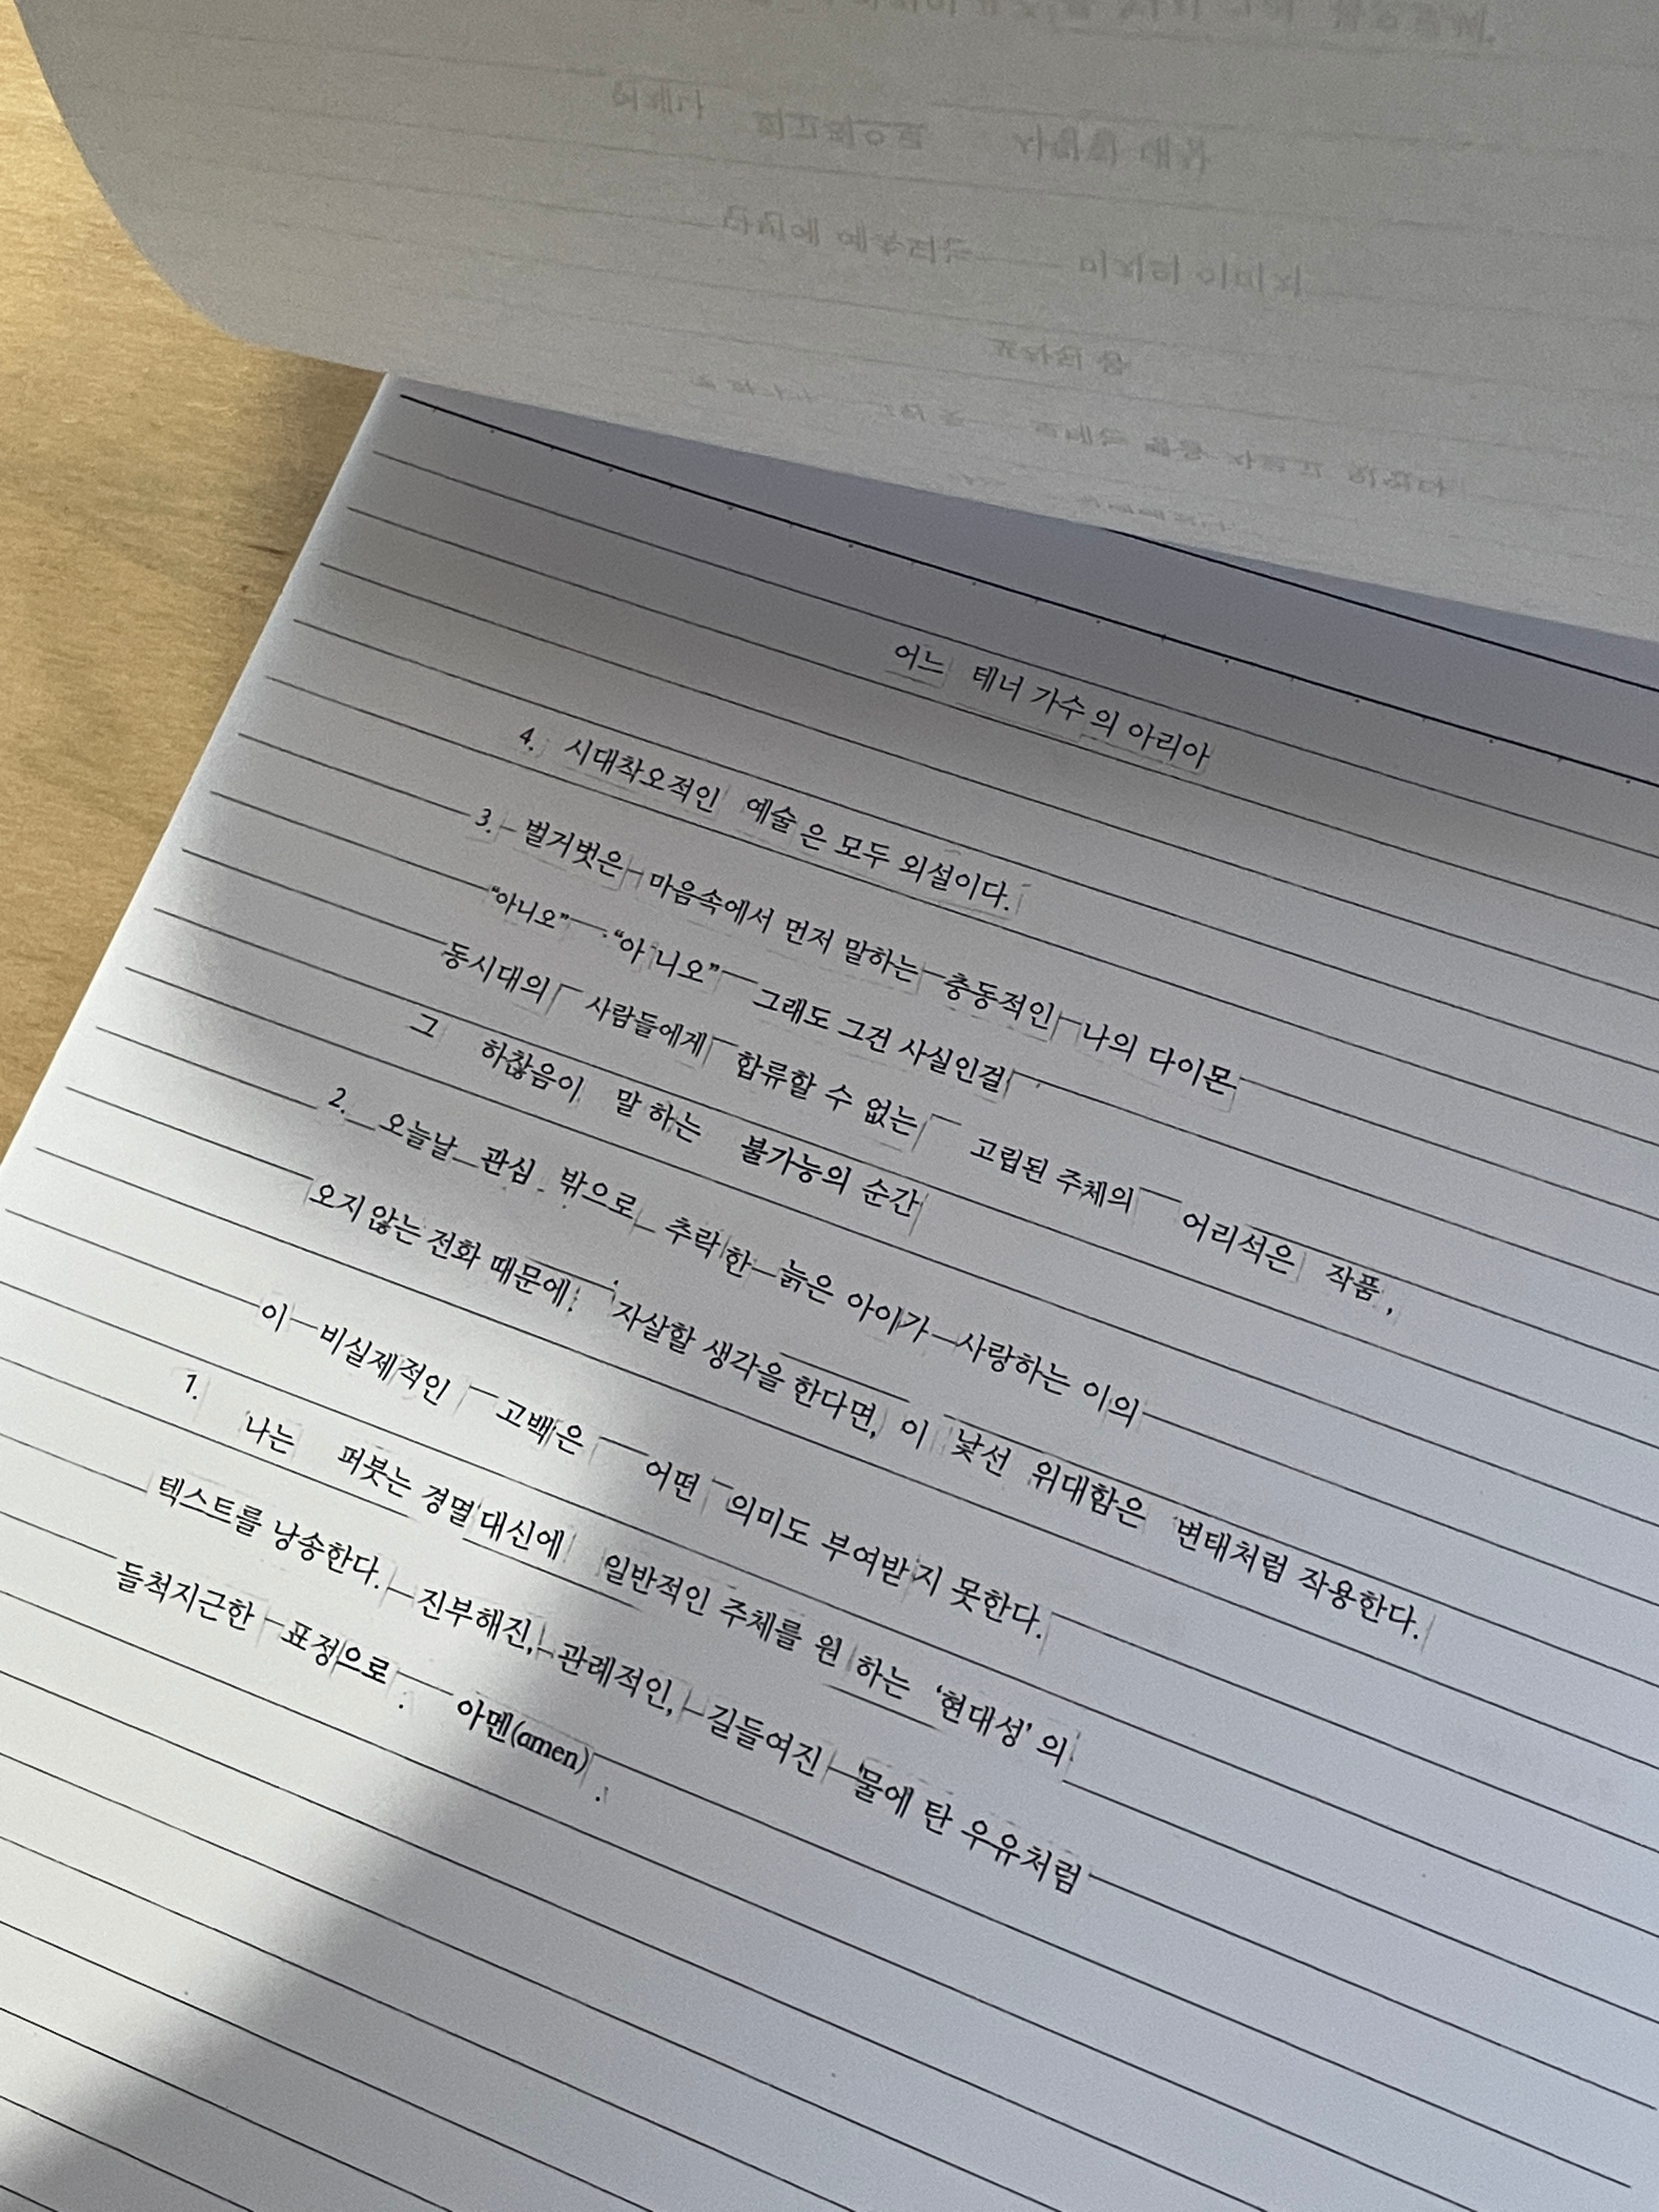 어느 테너 가수의 아리아
4. 시대착오적인 예술은 모두 외설이다.
3. 벌거벗은 마음속에서 먼저 말하는 충동적인 나의 다이몬
“아니오” “아니오” 그래도 그건 사실인걸
동시대의 사람들에게 합류할 수 없는 고립된 주체의 어리석은 작품,
그 하찮음이 말하는 불가능의 순간
2. 오늘날 관심 밖으로 추락한 늙은 아이가 사랑하는 이의
오지 않는 전화 때문에 자살할 생각을 한다면, 이 낯선 위대함은 변태처럼 작용한다.
이 비실제적인 고백은 어떤 의미도 부여받지 못한다.
1. 나는 퍼붓는 경멸 대신에 일반적인 주체를 원하는 ‘현대성’의
텍스트를 낭송한다. 진부해진, 관례적인, 길들여진 물에 탄 우유처럼
들척지근한 표정으로. 아멘(amen).